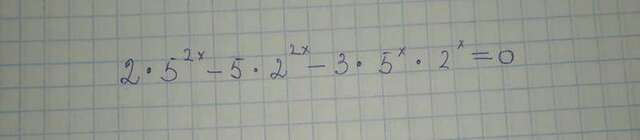 2 · 5^{2x} − 5 · 2^{2x} − 3 · 5^{x} · 2^{x} = 0